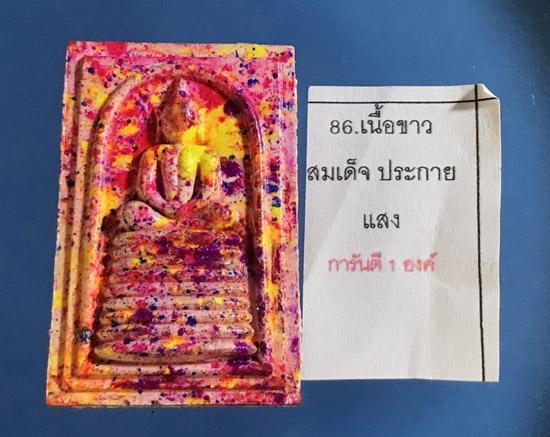 86.เนื้อขาว
สมเด็จ ประกาย
แสง
การันตี 1 องค์